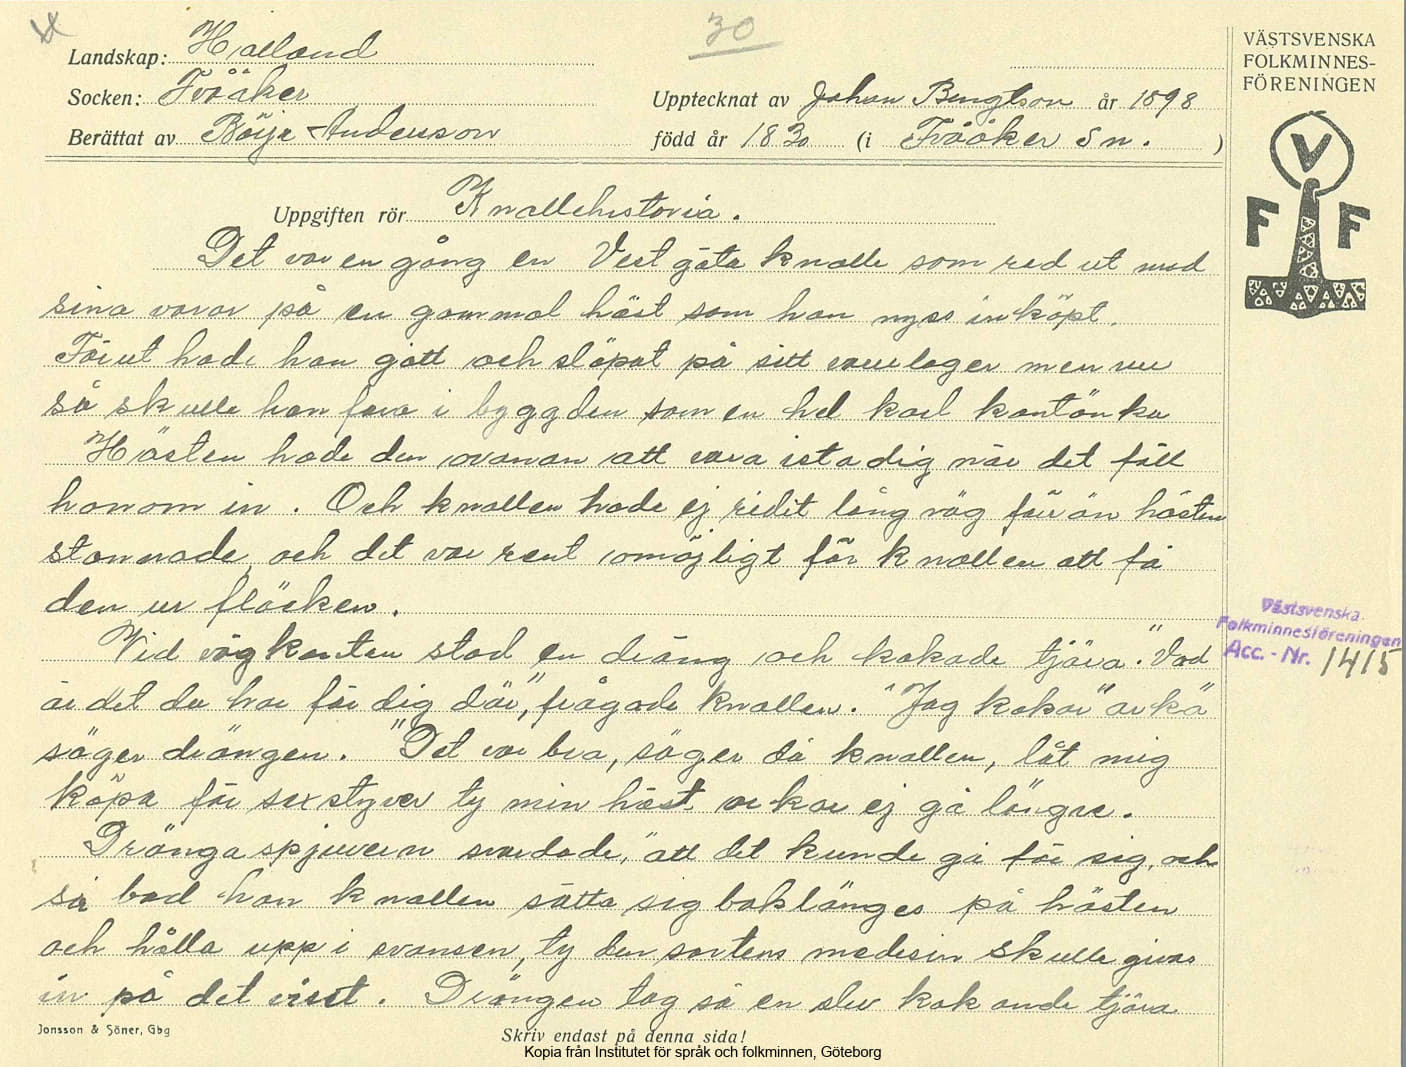 30
Landskap: Halland
Socken: Tvååker
Berättat av Börje Andersson
Upptecknat av Johan Bengtson år 1898
född år 1830 (i Tvååker Sn. )
VÄSTSVENSKA
FOLKMINNES-
FÖRENINGEN
V
F F
Uppgiften rör Knallehistoria.
Det var en gång en Vest göta knalle som red ut med
sina varor på en gammal häst som han nyss inköpt.
Förut hade han gått och släpat på sitt varulager men nu
så skulle han fara i byggden som en hel karl kantänka
Hästen hade den ovanan att vara istadig när det föll
honom in. Och knallen hade ej ridit lång väg förr än hästen
stannade, och det var rent omöjligt för knallen att få
den ur fläcken.
Vid vägkanten stod en dräng och kokade tjära. "Vad
är det du har för dig där", frågade knallen. "Jag kokar "arka"
säger drängen. "Det var bra, säger då knallen, låt mig
köpa för sex styver ty min häst arkar ej gå längre.
Drängaspjuvern svarade, "att det kunde gå för sig, och
så bad han knallen sätta sig baklänges på hästen
och hålla upp i svansen, ty den sortens medesin skulle givas
in på det viset. Drängen tog så en slev kokande tjära
Västsvenska
Folkminnesföreningen
Acc. - Nr. 1415
Jonsson & Söner, Gbg
Skriv endast på denna sida!
Kopia från Institutet för språk och folkminnen, Göteborg